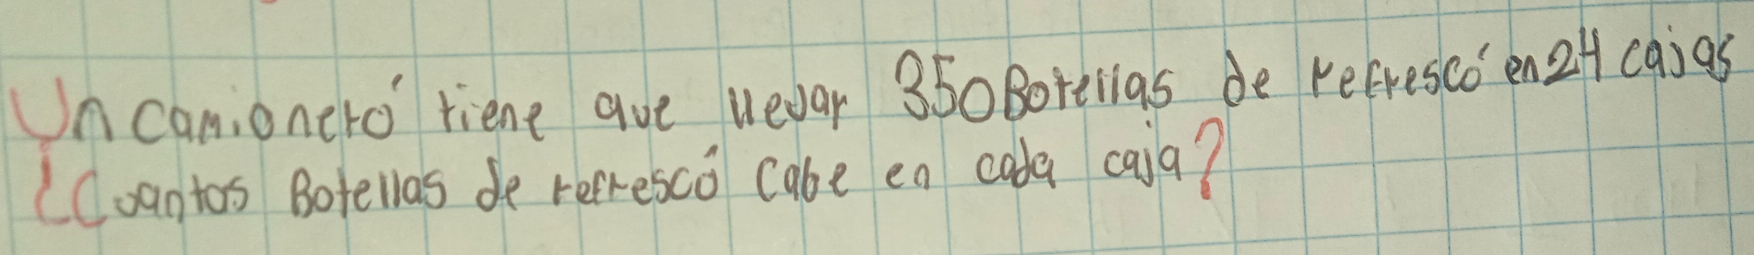 Un camionero tiene que llevar 350 Botellas de refresco en 24 cajas
¿Cuantos Botellas de refresco cabe en cada caja?